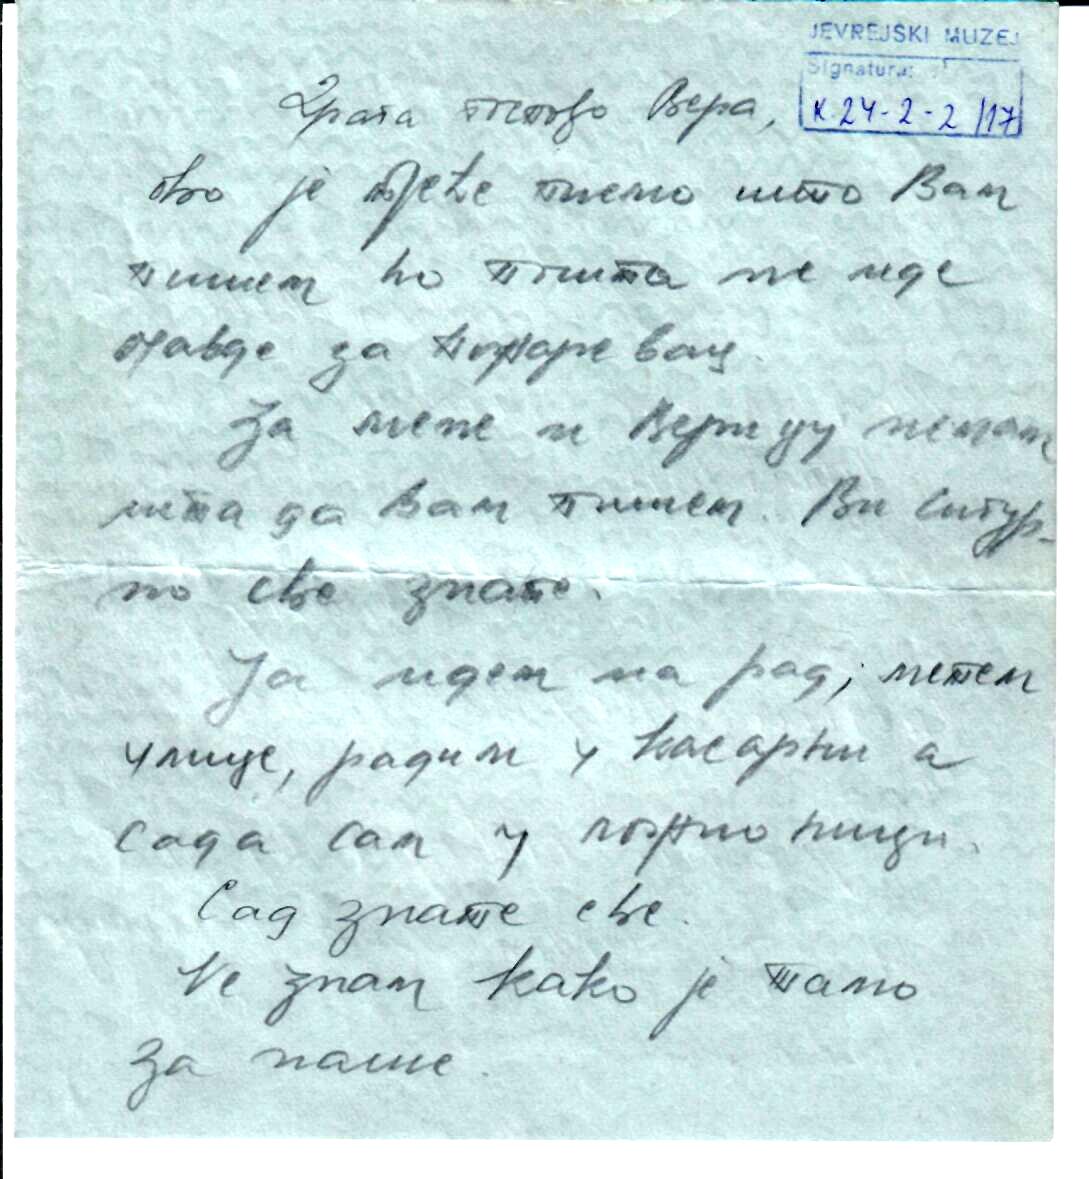 JEVREJSKI MUZEJ
Signatura:
K. 24-2-2/17
Драга госпођо Вера,
ово је треће писмо што Вам
пишем но пошта не иде
одавде за Пожаревац.
За мене и Верицу немам
шта да Вам пишем. Ви сигур-
но све знате.
Ја идем на рад, метем
улице, радим у касарни а
сада сам у ложионици.
Сад знате све.
Не знам како је тамо
за наше.